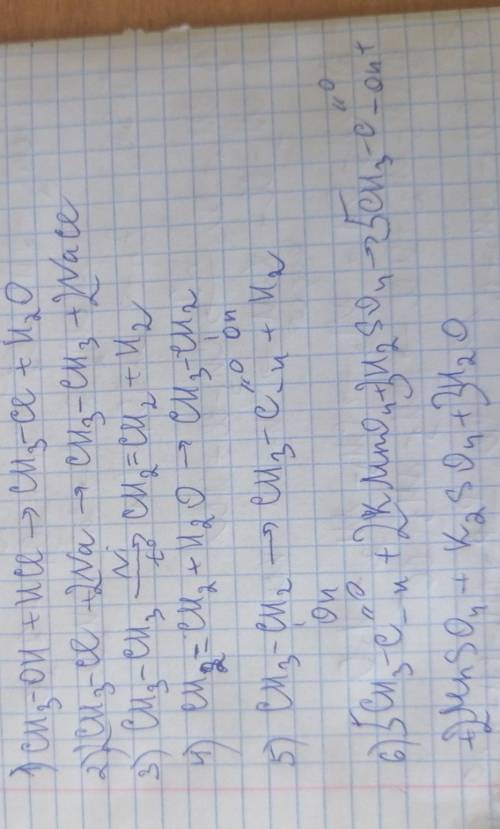 1) CH3-OH + HCl → CH3-Cl + H2O
2) 2CH3-Cl + 2Na → CH3-CH3 + 2NaCl
3) CH3-CH3 Ni → t° CH2=CH2 + H2
4) CH2=CH2 + H2O → CH3-CH2
OH
5) CH3-CH2 → CH3-C-H + H2
OH
O
6) 5CH3-C-H + 2KMnO4 + 3H2SO4 → 5CH3-C-OH +
O
O
+ 2MnSO4 + K2SO4 + 3H2O